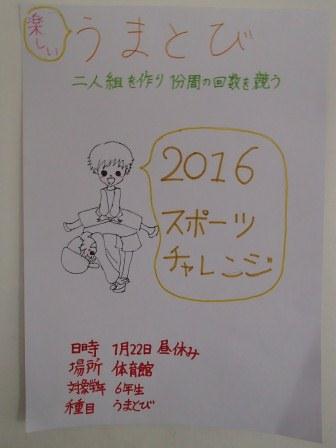 楽しい
うまとび
二人組を作り 1分間の回数を競う
2016
スポーツ
チャレンジ
日時 1月22日 昼休み
場所 体育館
対象学年 6年生
種目 うまとび